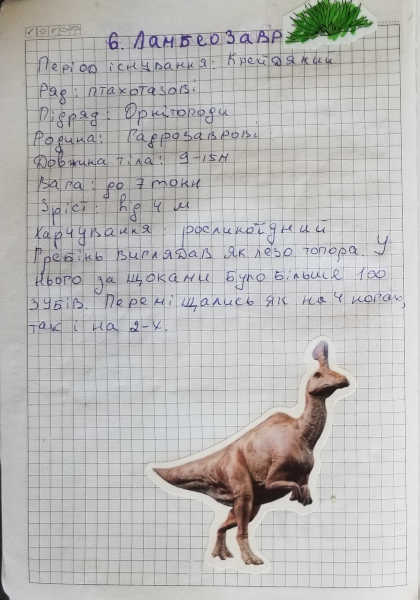 6. Ланбеозавр
Період існування: Крейдяний
Ряд: птахотазові
Підряд: Орнітоподи
Родина: Гадрозаврові
Довжина тіла: 9-15м
Вага: до 7 тонн
Зріст: від 4 м
Харчування: рослиноїдний
Гребінь виглядав як лезо топора. У
нього за щоками було більше 100
зубів. Переміщались як на 4 ногах,
так і на 2-х.